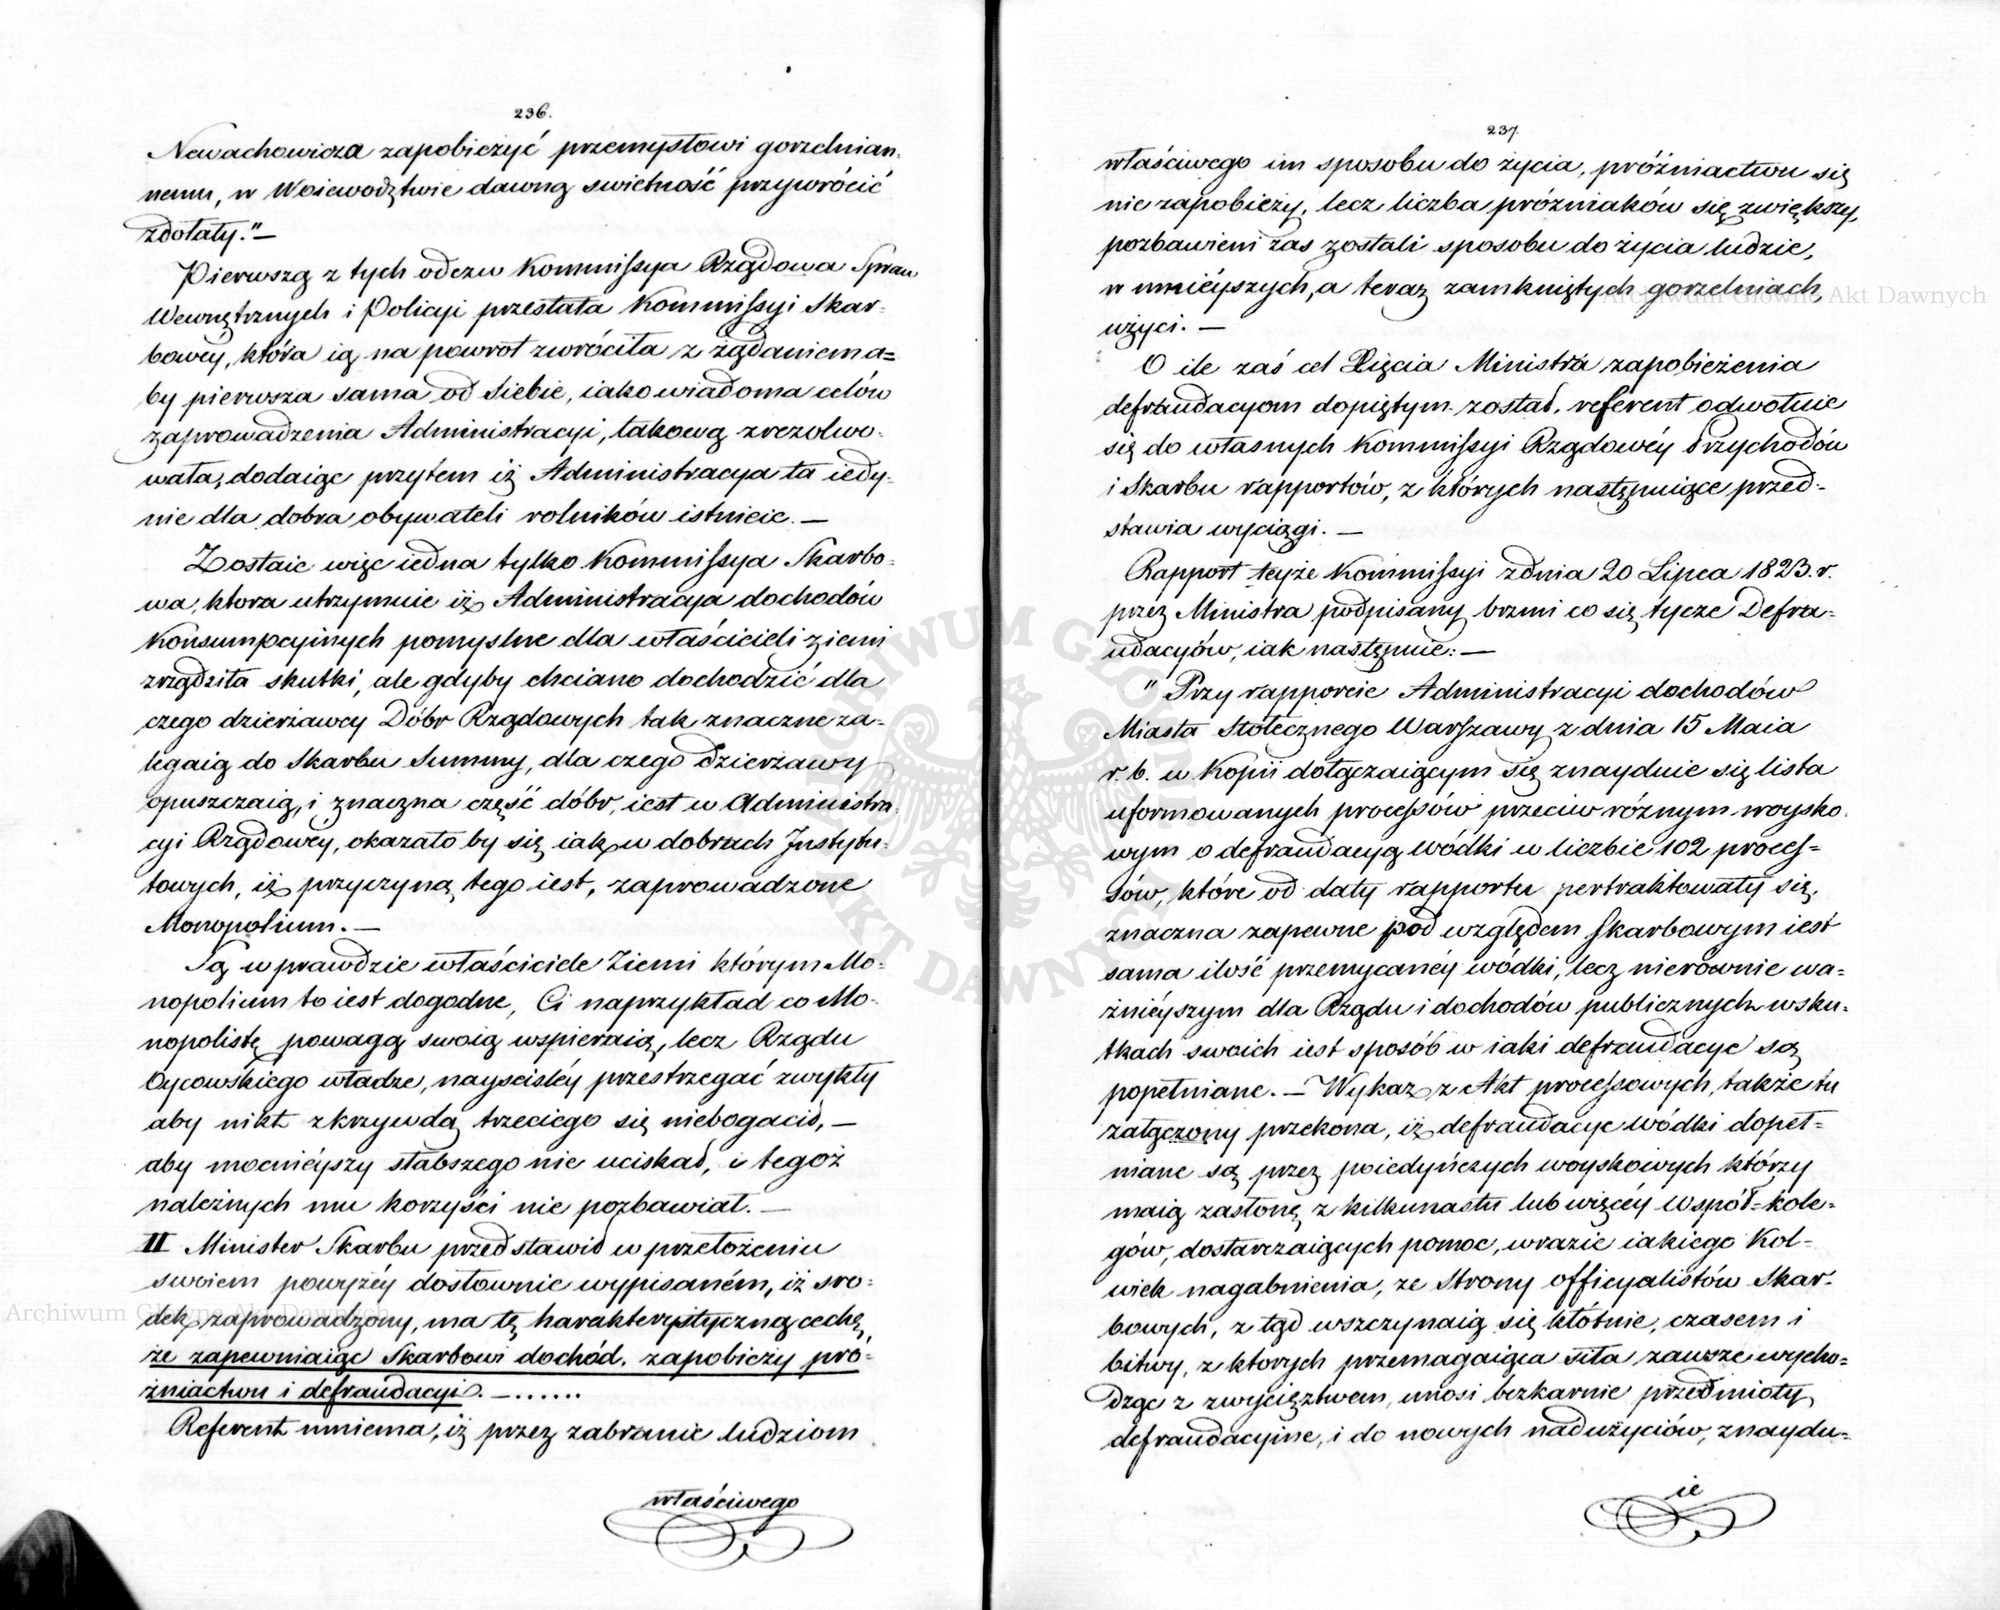 236.
Newachowicza zapobieżyć przemysłowi gorzelnian-
nemu, w Woiewodztwie dawną swietność przywrócić
zdołały."—
Pierwszą z tych odezw Kommissya Rządowa Spraw
Wewnętrznych i Policyi przesłała Kommissyi Skar-
bowéy, która ią na powrot zwróciła z żądaniem a=
by pierwsza sama od Siebie, iako wiadoma celów
zaprowadzenia Administracyi, takową zrezolwo-
wała, dodaiąc przytem iż Administracya ta iedy-
nie dla dobra obywateli rolników istnieie.—
Zostaie więc iedna tylko Kommissya Skarbo-
wa, ktora utrzymuie iż Administracya dochodów
Konsumpcyinych pomyslne dla właścicieli ziemi
zrządziła skutki, ale gdyby chciano dochodzić dla
czego dzierżawcy Dóbr Rządowych tak znaczne za-
legaią do Skarbu Summy, dla czego dzierżawy
opuszczaią, i znaczna część dóbr, iest w Administra-
cyi Rządowéy, okazało by się iak w dobrach Instytu-
towych, iż przyczyną tego iest, zaprowadzone
Monopolium.—
Są wprawdzie właściciele Ziemi którym Mo-
nopolium to iest dogodne, Ci naprzykład co Mo-
nopolistę powagą swoią wspieraią, lecz Rządu
Oycowskiego władze, nayscisléy przestrzegać zwykły
aby nikt z krzywdą trzeciego się niebogacił,—
aby mocnieyszy słabszego nie uciskał, i tegoż
należnych mu korzyści nie pozbawiał.—
II Minister Skarbu przedstawił w przełożeniu
swoiem powyżéy dosłownie wypisaném, iż sro-
dek zaprowadzony, ma tę harakterystyczną cechę,
że zapewniaiąc Skarbowi dochód, zapobieży pró-
żniactwu i defraudacyi.—......
Referent mniema, iż przez zabranie ludziom
właściwego
237.
właściwego im sposobu do życia, próżniactwu się
nie zapobieży, lecz liczba próżniaków się zwiększy,
pozbawieni zas zostali sposobu do życia ludzie,
w mnieyszych, a teraz zamkniętych gorzelniach
użyci.—
O ile zaś cel Xięcia Ministra zapobieżenia
defraudacyom dopiętym został, referent odwołuie
się do własnych Kommissyi Rządowéy Przychodów
i Skarbu rapportów, z których następuiące przed-
stawia wyciągi.—
Rapport teyże Kommissyi z dnia 20 Lipca 1823. r.
przez Ministra podpisany, brzmi co się tycze Defra=
udacyów, iak następuie:—
" Przy rapporcie Administracyi dochodów
Miasta Stołecznego Warszawy z dnia 15 Maia
r. b. w Kopii dołączaiącym się znayduie się lista
uformowanych processów przeciw różnym woysko-
wym o defraudacyą wódki w liczbie 102 proces=
sów, które od daty rapportu pertraktowały się,
znaczna zapewne pod względem skarbowym iest
sama ilość przemycanéy wódki, lecz nierównie wa=
żnieyszym dla Rządu i dochodów publicznych wsku-
tkach swoich iest sposób w iaki defraudacye są
popełniane.— Wykaz z Akt processowych, także tu
załączony przekona, iż defraudacye wódki dopeł=
niane są przez poiedyńczych woyskowych którzy
maią zasłonę z kilkunastu lub więcéy Współ=kole-
gów, dostarczaiących pomoc, w razie iakiego Kol-
wiek nagabnienia, ze Strony officyalistów Skar-
bowych, z tąd wszczynaią się kłótnie, czasem i
bitwy, z ktorych przemagaiąca siła zawsze wycho=
dząc z zwycięztwem, unosi bezkarnie przedmioty
defraudacyine, i do nowych nadużyciów, znaydu=
ie